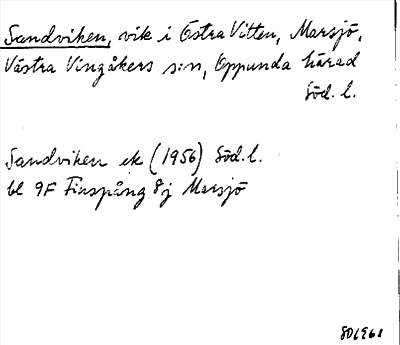 Sandviken, vik i Östra Vitten, Marsjö,
Västra Vingåkers s:n, Oppunda härad
Söd. l.
Sandviken ek (1956) Söd. l.
bl 9F Finspång 8j Marsjö